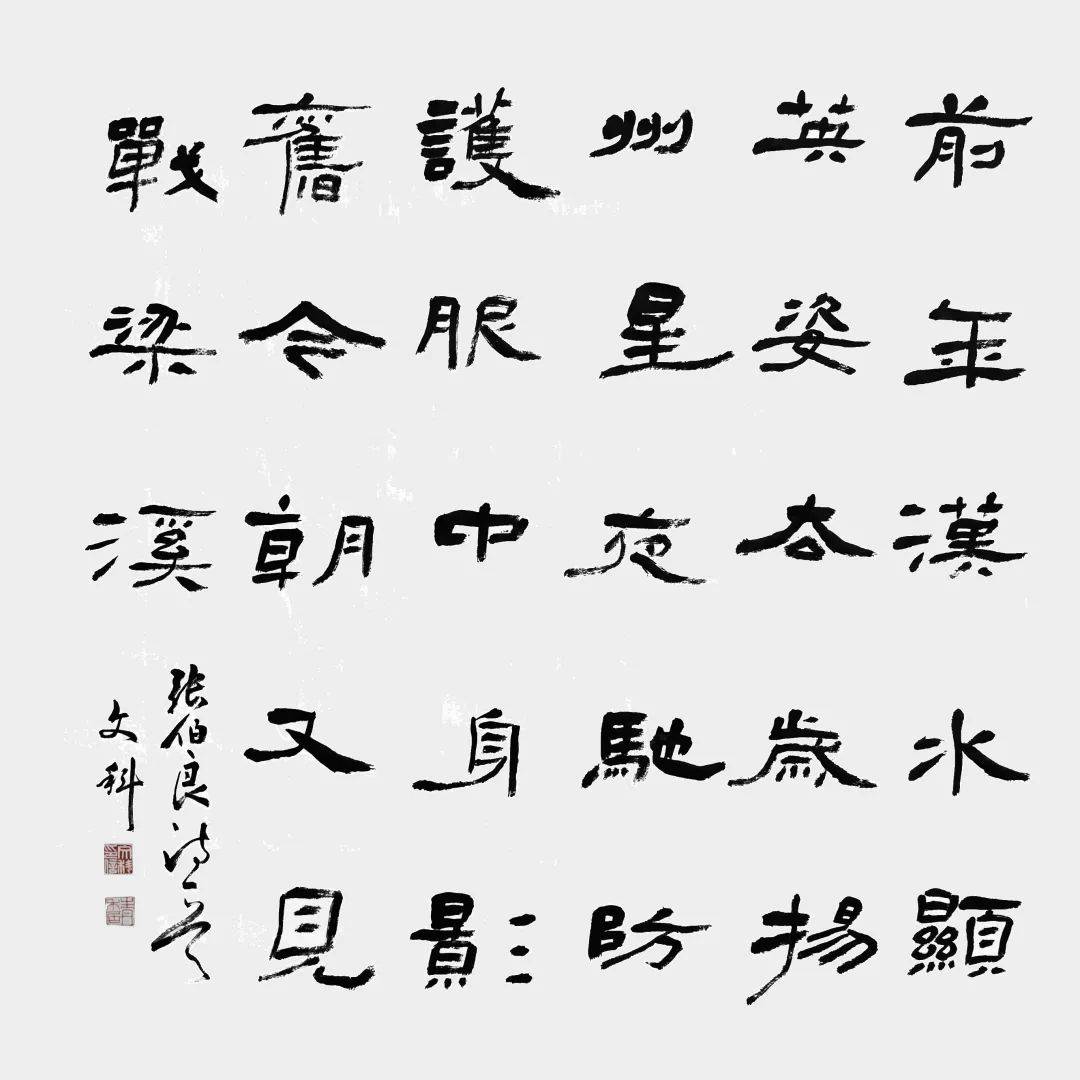 前年漢水顯
英姿去歲揚
州星夜馳防
護服中身影
舊今朝又見
戰梁溪
张伯良诗一首
文科